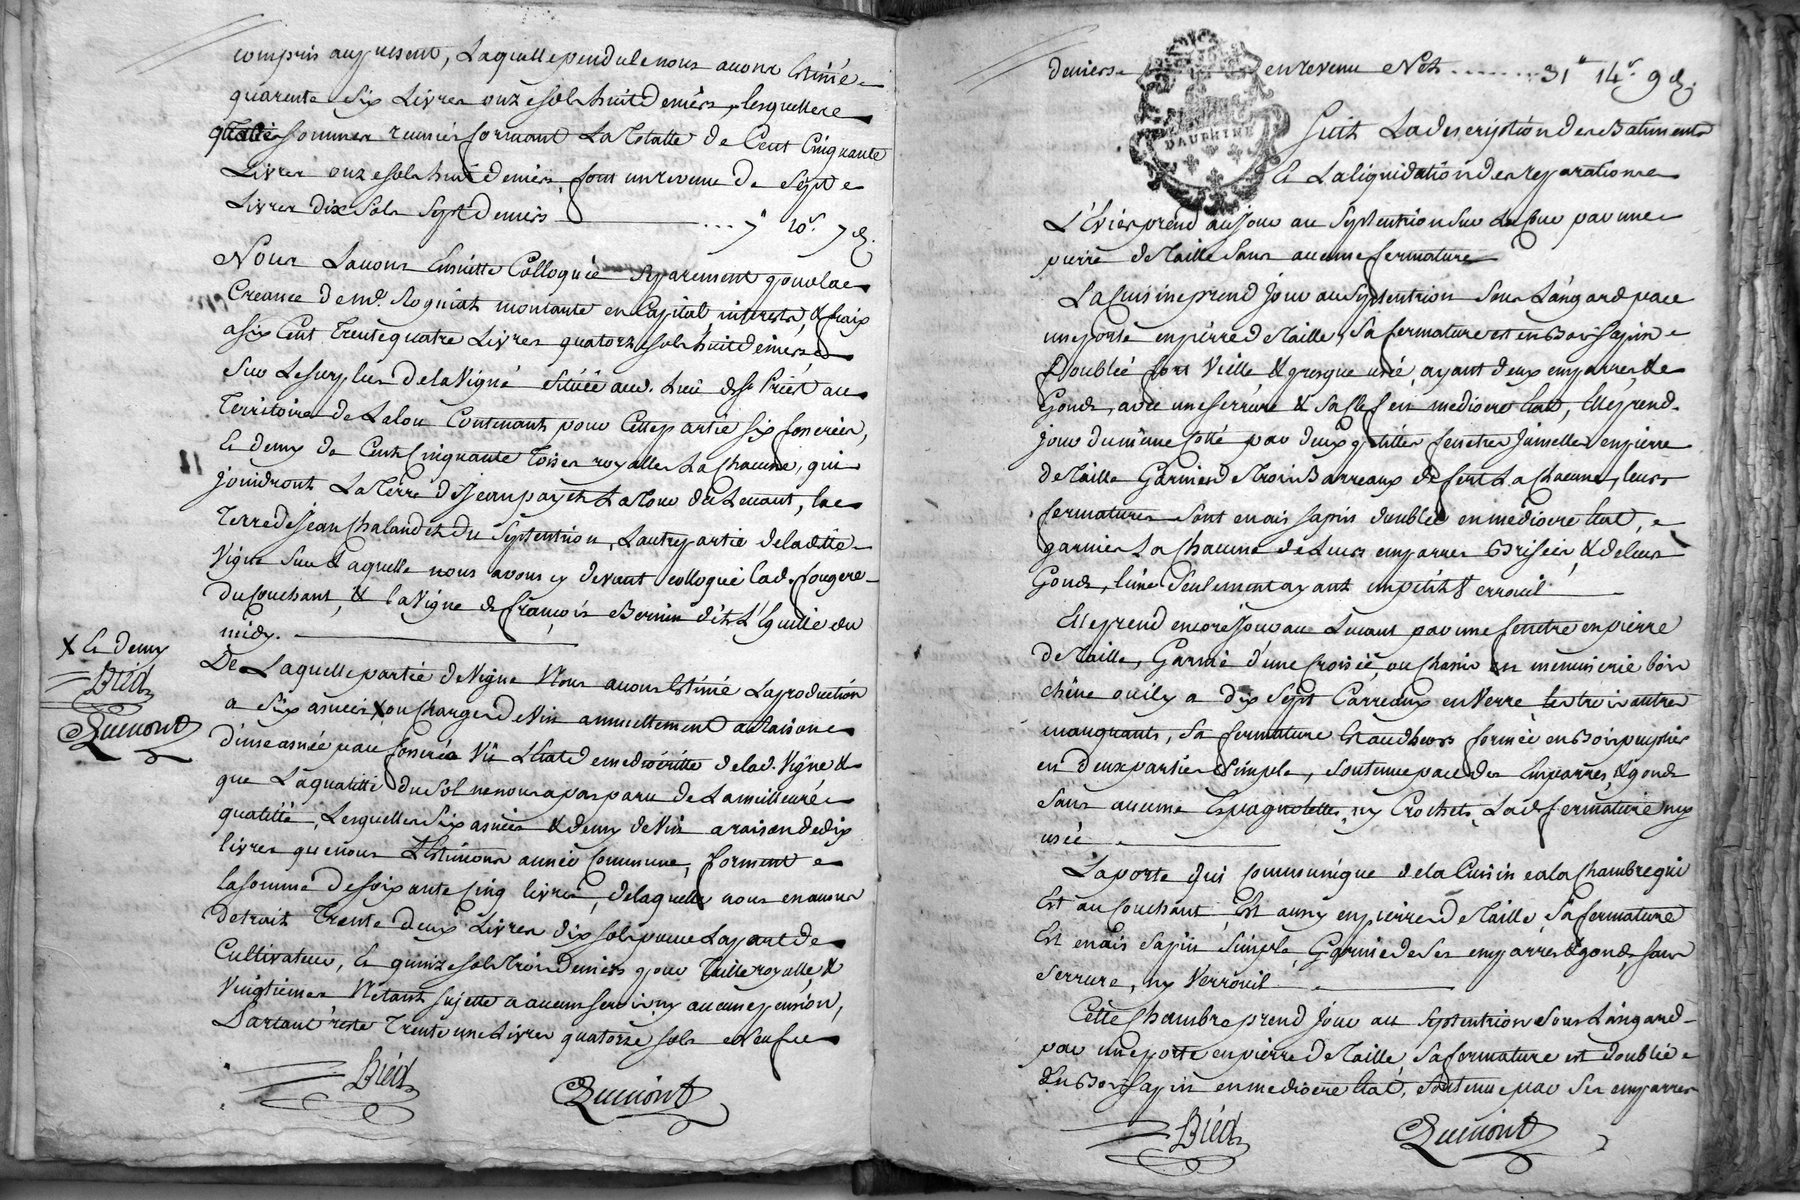 compris au present, Laquelle pendule nous avons Estimée
quarente six Livres onze sols huit deniers, lesquelles
sommes reunies formant La Totalle de Cent Cinquante
Livres onze sols huit deniers, font un revenu de Sept
Livres Dix Sols Sept Deniers ... 7# 10s. 7d.
Nous Lavons Ensuitte Colloquée Separement pour la
Creance de md. Rogniat montante en Capital interests, & fraix
a six Cent Trente quatre Livres quatorze sols huit deniers
Sur Le Surplus De la Vigne Située aud. lieu de St Priest au
Territoire de Lalou Contenant pour Cette partie six fosserées,
Et demy de Cent Cinquante Toises royalles La Chacune, qui
joindront La Terre de Jean payet La Tour du Levant, la
Terre de Jean Chaland et du Septentrion, L'autre partie de la ditte
Vigne Sur Laquelle nous avons cy devant colloqué lad. fougere
du Couchant, & la Vigne de françois Bernin dit L'Eguille du
midy.
De Laquelle partie de Vigne Nous avons Estimé La production
a Six asnées X ou Charges de Vin annuellement a Raison
d'une asnée par fosserée Vû L'Etat de mediocritte de lad. Vigne &
que La qualitté du Sol ne nous a pas paru de La meilleure
qualitté, Lesquelles Six asnées & demy de Vin a raison de dix
livres que nous Estimons année Commune, forment
la somme de soixante Cinq livres, de laquelle nous en avons
detrait Trente deux Livres dix sols pour La part de
Cultivateur, Et quinze sols Trois deniers pour Taille royalle, &
Vingtiemes N'etant sujette a aucun servis ny aucune pension,
Partant reste Trente une Livres quatorze sols et Neuf
Biéd
Dumont
X Et demy
Biéd
Dumont
deniers en revenu Net ........ 31# 14s. 9d.
DAUPHINE
Suit La description des Batiments
Et La liquidation des reparations
L'Evier prend du jour au Septentrion Sur La Cour par une
pierre de Taille Sans aucune fermature
La Cuisine prend Jour au Septentrion Sous L'angard par
une porte en pierre de Taille, Sa fermature est en Bois Sapin
Doublée fort Vielle & presque usée, ayant deux emparres &
Gonds, avec une Serrure & Sa Clef en mediocre Etat, Elle prend
jour du même Cotté par deux petittes fenetres Jumelles en pierre
de Taille Garnies de Trois Barreaux de fert La Chacune, leurs
fermatures sont en ais sapin doublé en mediocre Etat,
garnies La Chacune de Leurs emparres Brisées, & de leurs
Gonds, l'une Seulement ayant un petit Verrouil
Elle prend encore Jour au Levant par une fenetre en pierre
de Taille, Garnie d'une Croisée, ou Chasis en menuiserie bois
chêne ou il y a dix Sept Carreaux en Verre, les trois autres
manquants, Sa fermature Est au dehors formée en Bois peuplier
en deux parties Simple, Soutenue par des Emparres, & gonds
Sans aucune Espagnolette, ny Crochet, Lad. fermature my
usée.
La porte qui Communique de la Cuisine a la Chambre qui
Est au Couchant, Est aussy en pierre de Taille Sa fermature
Est en ais Sapin Simple, Garnie de Ses emparres & gonds, Sans
Serrure, ny Verrouil
Cette Chambre prend Jour au Septentrion Sous L'angard
par une porte en pierre de Taille, Sa fermature est doublée
En Bois Sapin en mediocre Etat, Soutenue par Ses emparres
Biéd
Dumont